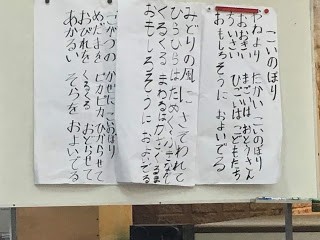 こいのぼり
やねより たかい こいのぼり
おおきい まごいは おとうさん
ちいさい ひごいは こどもたち
おもしろそうに およいでる
みどりの風に さそわれて
ひらひらは
くるくる まわるは
おもしろそうに およいでる
ごがつの かぜに こいのぼり
めだまを ピカピカ ひからせて
おびれを くるくる おどらせて
あかるい そらを およいでる